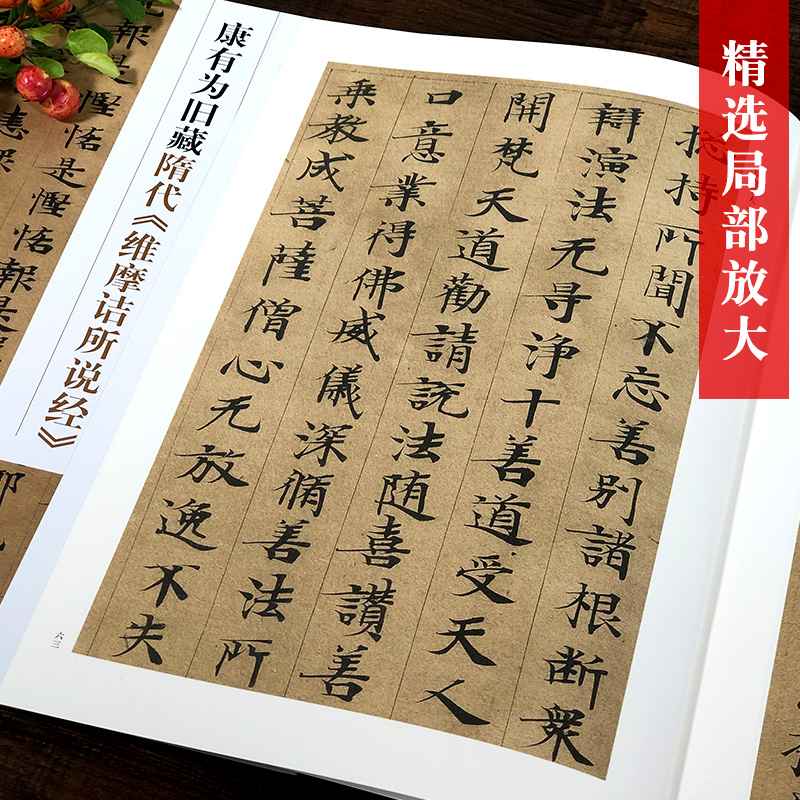 精选局部放大
康有为旧藏隋代《维摩诘所说经》
持所聞不忘善別諸根断衆
辯演法无㝵淨十善道受天人
開梵天道勸請說法随喜讚善
口意業得佛威儀深脩善法所
乗教成菩薩僧心无放逸不失
六三
報是慳悋是慳悋報是